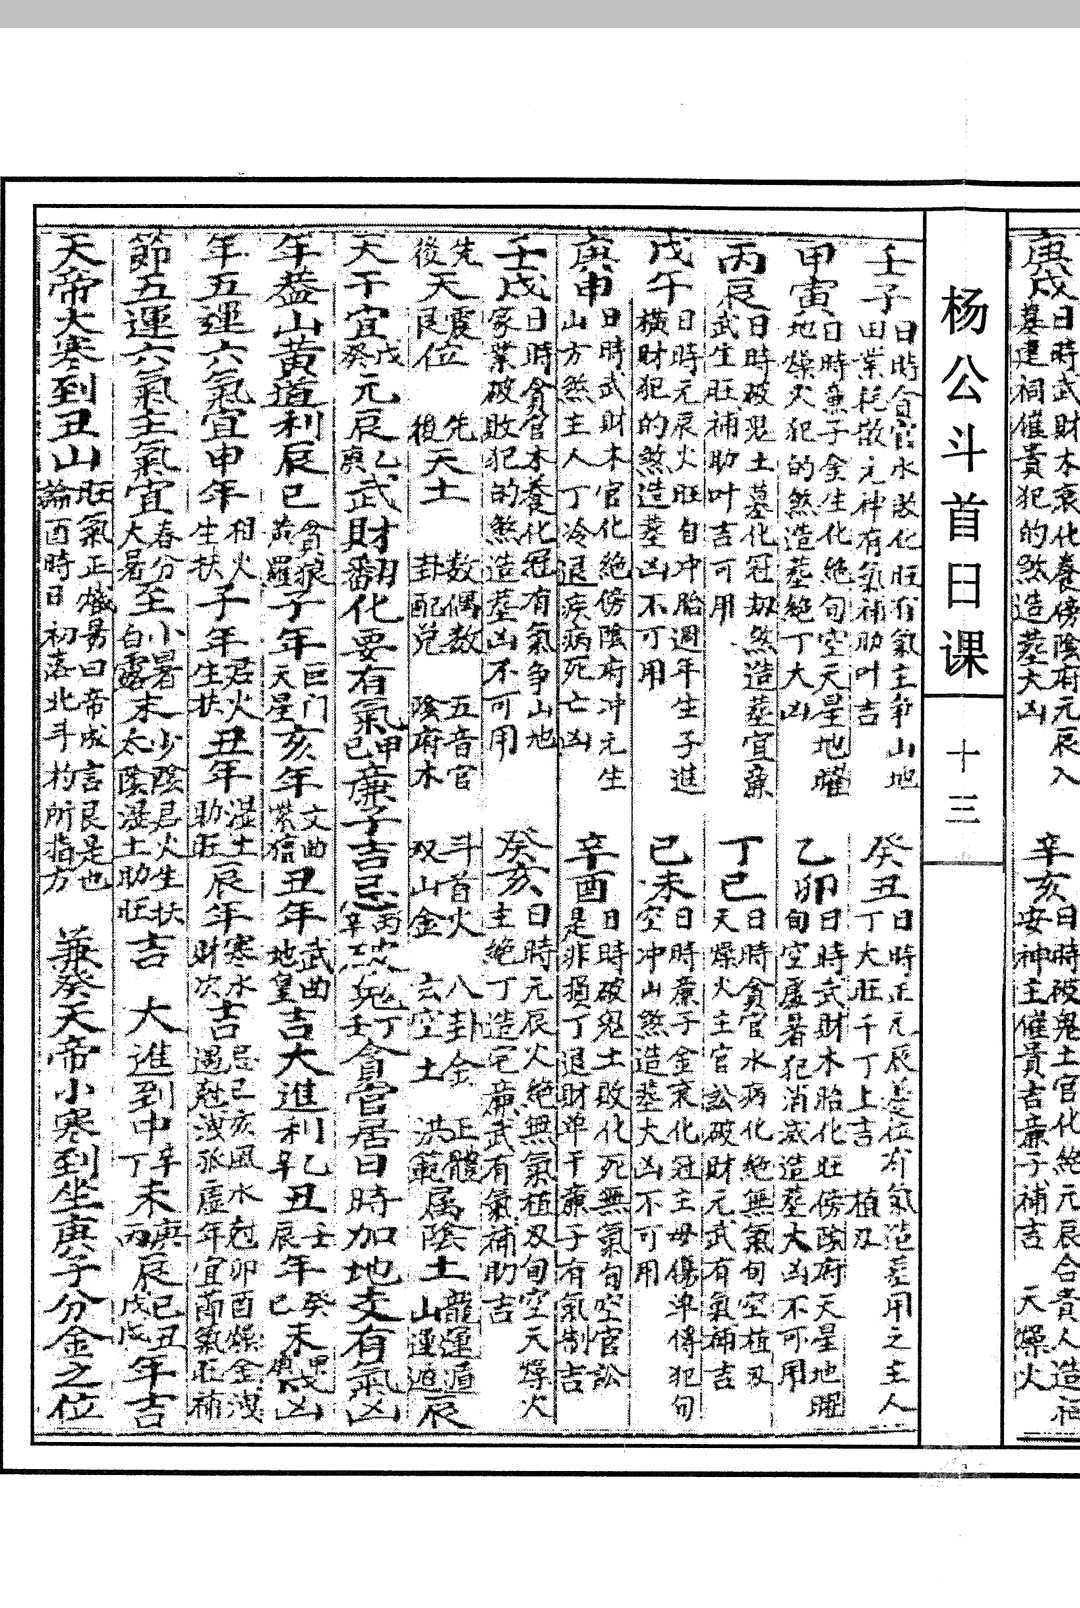 庚戌日時武財木衰化養傍陰府元辰入
墓建祠催貴犯的煞造塟大凶
辛亥日時破鬼土官化絶元辰合貴人造福
安神主催貴吉亷子補吉 天燥火
杨公斗首日课
十三
壬子日時貪官水敗化旺有氣主爭山地
田業耗散元神有氣補助叶吉
癸丑日時正元辰墓位有氣造塟用之主人
丁大旺千丁上吉 植刄
甲寅日時亷子金生化絶旬空天星地曜
地燥火犯的煞造塟絶丁大凶
乙卯日時武財木胎化旺傍陰府天星地曜
旬空虛暑犯消滅造塟大凶不可用
丙辰日時破鬼土墓化冠刼煞造塟宜亷
武生旺補助叶吉可用
丁巳日時貪官水病化絶無氣旬空植刄
天燥火主官訟破財元武有氣補吉
戊午日時元辰火旺自冲胎週年生子進
橫財犯的煞造塟凶不可用
己未日時亷子金衰化冠主母傷準傅犯旬
空冲山煞造塟大凶不可用
庚申日時武財木官化絶傍陰府冲元生
山方煞主人丁冷退疾病死亡凶
辛酉日時破鬼土敗化死無氣旬空官訟
是非損丁退財準干亷子有氣制吉
壬戌日時貪官水養化冠有氣争山地
家業破敗犯的煞造塟凶不可用
癸亥日時元辰火絶無氣植刄旬空天燥火
主絶丁造宅亷武有氣補助吉
先後天震艮位 先後天土 数偶数卦配兌 五音官陰府木 斗首火双山金 八卦金玄空土 正體洪範属陰土龍運遁山運遁辰
天干宜戊癸元辰乙庚武財翻化要有氣甲己亷子吉忌丙辛破鬼丁壬貪官居日時加地支有氣凶
年葢山黄道利辰巳貪狼黄羅子年巨门天星亥年文曲紫檀丑年武曲地皇吉大進利乙辛丑壬辰年癸巳未甲庚戌凶
年五運六氣宜申年相火生扶子年君火生扶丑年湿土助旺辰年寒水財次吉忌己亥風水尅遇尅洩孤虛年宜卯酉燥金洩菂氣旺補
節五運六氣主氣宜春分大暑至小暑白露末少陰君火生扶太陰湿土助旺吉 大進到中辛丁未庚丙辰己丑戊戌年吉
天帝大寒到丑山旺氣正熾易曰帝成言艮是也論酉時日初落北斗杓所指方 兼癸天帝小寒到坐庚子分金之位